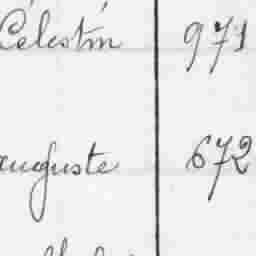 Célestin 971
auguste 672